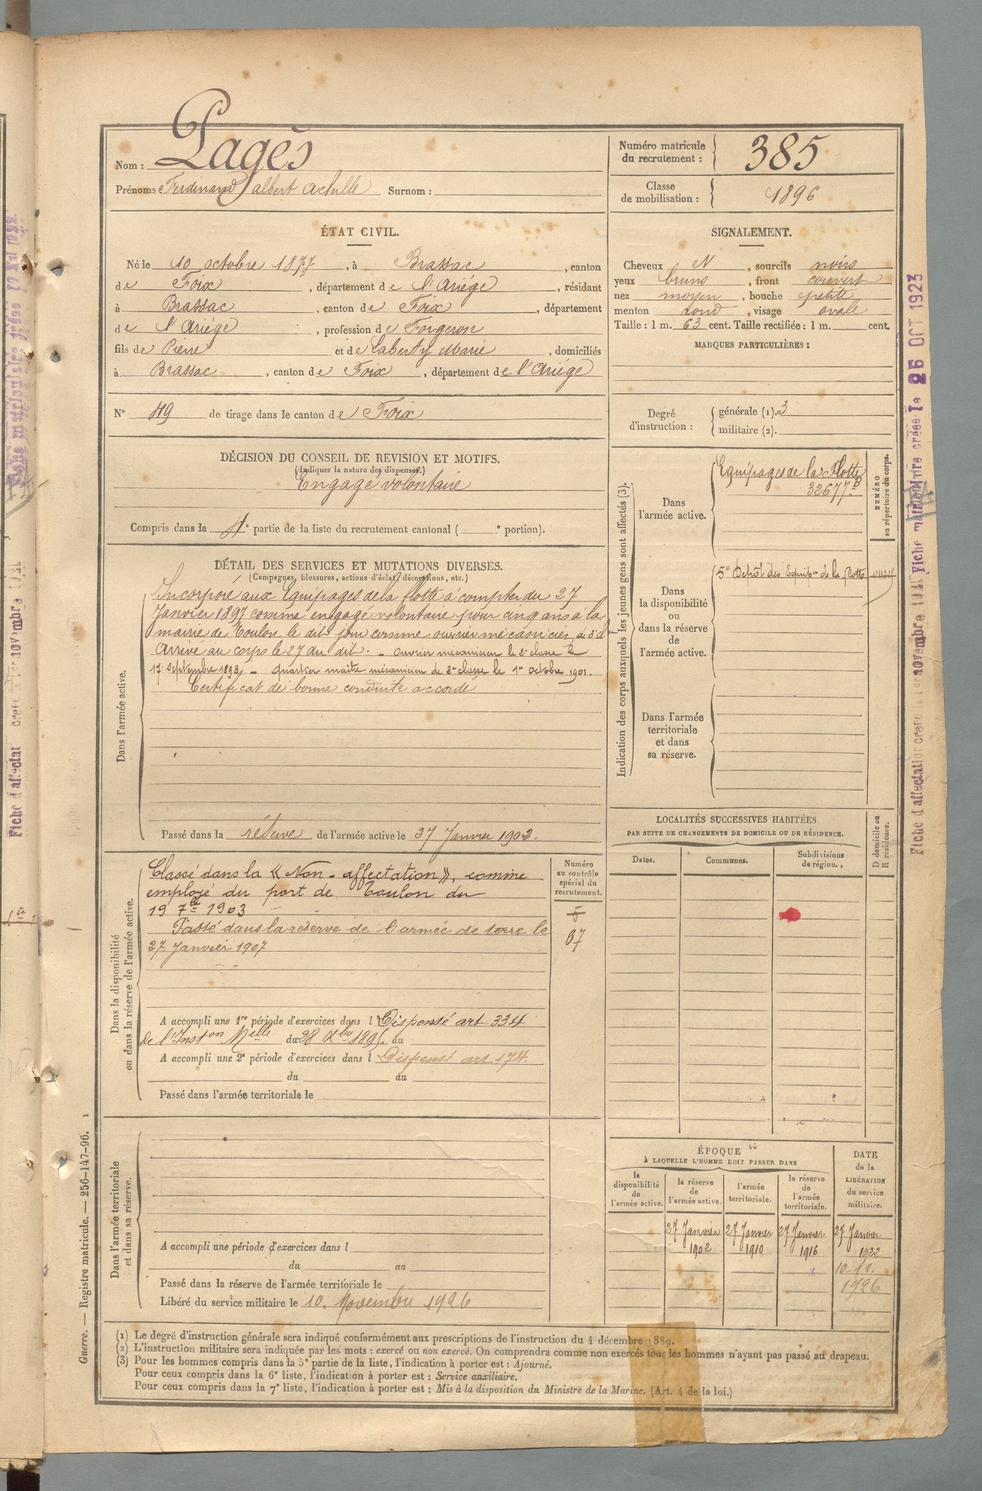 Nom : Pagès
Prénoms : Ferdinand albert achille Surnom :
Numéro matricule du recrutement : 385
Classe de mobilisation : 1896
ÉTAT CIVIL.
Né le 10 octobre 1877, à Brassac, canton
de Foix, département de l'Ariége, résidant
à Brassac, canton de Foix, département
de l'Ariége, profession de Forgeron
fils de Pierre et de Laberty Marie, domiciliés
à Brassac, canton de Foix, département de l'Ariége
N° 49 de tirage dans le canton de Foix
SIGNALEMENT.
Cheveux et, sourcils noirs
yeux bruns, front couvert
nez moyen, bouche petite
menton rond, visage ovale
Taille : 1 m. 63 cent. Taille rectifiée : 1 m. cent.
MARQUES PARTICULIÈRES :
Degré d'instruction : générale (1). 3
militaire (2).
DÉCISION DU CONSEIL DE REVISION ET MOTIFS.
(Indiquer la nature des dispenses.)
Engagé volontaire
Compris dans la 4e partie de la liste du recrutement cantonal ( e portion).
DÉTAIL DES SERVICES ET MUTATIONS DIVERSES.
(Campagnes, blessures, actions d'éclat, décorations, etc.)
Dans l'armée active.
Incorporé aux Equipages de la flotte à compter du 27
Janvier 1897 comme engagé volontaire pour cinq ans à la
mairie de Toulon le dit jour comme ouvrier mécanicien
Arrivé au corps le 27 du dit. - Ouvrier mécanicien de 2e classe le
17 Septembre 1898, - Quartier maître mécanicien de 2e classe le 1er octobre 1901.
Certificat de bonne conduite accordé
Passé dans la réserve de l'armée active le 27 Janvier 1902.
Indication des corps auxquels les jeunes gens sont affectés (3).
NUMÉRO au répertoire du corps.
Dans l'armée active.
Equipages de la Flotte
32677
Dans la disponibilité ou dans la réserve de l'armée active.
5e Dépôt des Equip. de la Flotte
Dans l'armée territoriale et dans sa réserve.
Dans la disponibilité ou dans la réserve de l'armée active.
Classé dans la « Non-affectation », comme
employé du port de Toulon du
19 7bre 1903
Passé dans la réserve de l'armée de terre le
27 Janvier 1907
A accompli une 1re période d'exercices dans l Dispensé art 334
de l'Inston Melle du 28 Xbre 1895 au
A accompli une 2e période d'exercices dans l Dispensé art 174.
du au
Passé dans l'armée territoriale le
Numéro au contrôle spécial du recrutement.
5
67
LOCALITÉS SUCCESSIVES HABITÉES
PAR SUITE DE CHANGEMENTS DE DOMICILE OU DE RÉSIDENCE.
Dates. Communes. Subdivisions de région. D domicile ou R résidence.
Dans l'armée territoriale et dans sa réserve.
A accompli une période d'exercices dans l
du au
Passé dans la réserve de l'armée territoriale le
Libéré du service militaire le 10 Novembre 1926
ÉPOQUE
À LAQUELLE L'HOMME DOIT PASSER DANS
la disponibilité de l'armée active.
la réserve de l'armée active.
l'armée territoriale.
la réserve de l'armée territoriale.
DATE de la LIBÉRATION du service militaire.
27 Janvier 1902
27 Janvier 1910
27 Janvier 1916
27 Janvier 1922
10.11.
1926
(1) Le degré d'instruction générale sera indiqué conformément aux prescriptions de l'instruction du 4 décembre 1889.
(2) L'instruction militaire sera indiquée par les mots : exercé ou non exercé. On comprendra comme non exercés tous les hommes n'ayant pas passé au drapeau.
(3) Pour les hommes compris dans la 5e partie de la liste, l'indication à porter est : Ajourné.
Pour ceux compris dans la 6e liste, l'indication à porter est : Service auxiliaire.
Pour ceux compris dans la 7e liste, l'indication à porter est : Mis à la disposition du Ministre de la Marine. (Art. 4 de la loi.)
Guerre. — Registre matricule. — 256-147-96. 1
Fiche matriculaire créée le 26 OCT 1923
Fiche d'affectation créée novembre